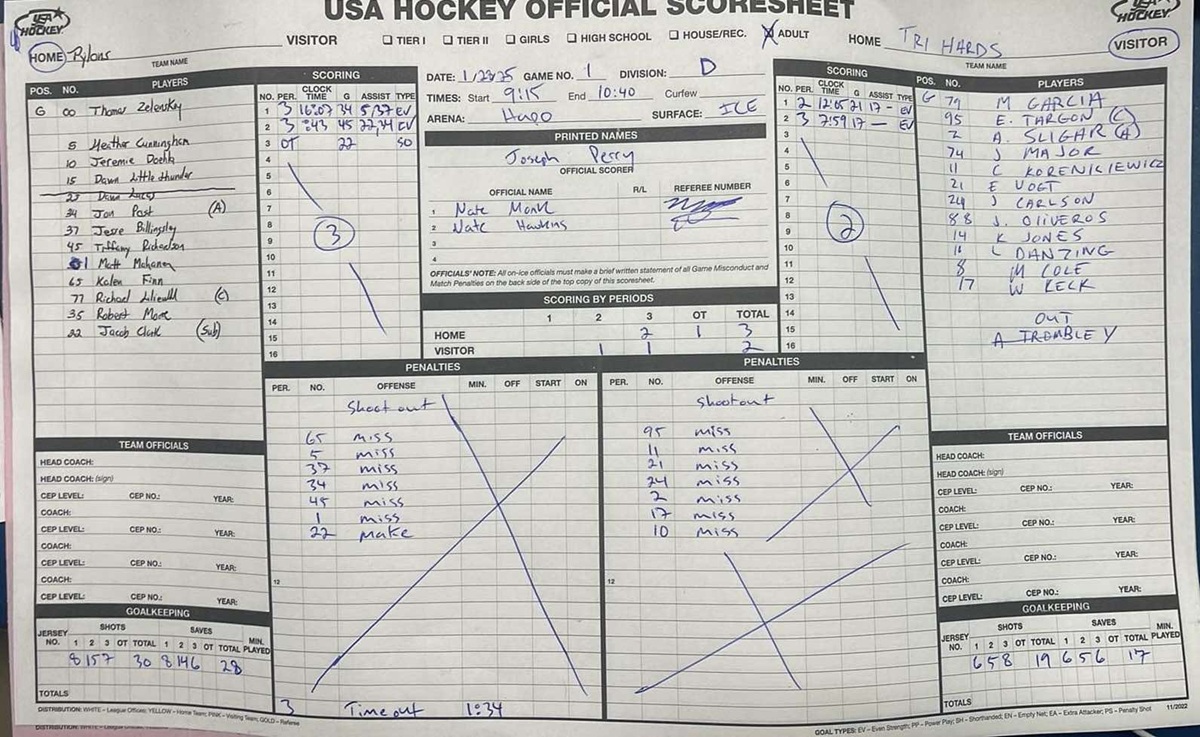 USA HOCKEY OFFICIAL SCORESHEET
USA HOCKEY
USA HOCKEY
VISITOR ☐ TIER I ☐ TIER II ☐ GIRLS ☐ HIGH SCHOOL ☐ HOUSE/REC. ☒ ADULT HOME TRI HARDS VISITOR
HOME: Pylons
TEAM NAME
TEAM NAME
POS. NO. PLAYERS
G 00 Thomas Zelensky
5 Heither Cunningham
10 Jeremie
15 Dawn Little thunder
27 Dawn
34 Jon Past (A)
37 Jesse Billingsley
45 Tiffany Richardson
61 Matt Mahanen
65 Kalen Finn
77 Richael (C)
35 Robert More
22 Jacob Clark (Sub)
SCORING
NO. PER. CLOCK TIME G ASSIST TYPE
1 3 16:07 34 5/37 EV
2 3 :43 45 22,34 EV
3 OT 22 SO
4
5
6
7
8
9
10
11
12
13
14
15
16
3
DATE: 1/23/25 GAME NO. 1 DIVISION: D
TIMES: Start 9:15 End 10:40 Curfew
ARENA: Hugo SURFACE: ICE
PRINTED NAMES
Joseph Perry
OFFICIAL SCORER
OFFICIAL NAME R/L REFEREE NUMBER
1 Nate Monk
2 Nate Hawkins
3
4
OFFICIALS' NOTE: All on-ice officials must make a brief written statement of all Game Misconduct and
Match Penalties on the back side of the top copy of this scoresheet.
SCORING BY PERIODS
1 2 3 OT TOTAL
HOME 2 1 3
VISITOR 1 1 2
SCORING
NO. PER. CLOCK TIME G ASSIST TYPE
1 2 12:05 21 17 - EV
2 3 7:59 17 — EV
3
4
5
6
7
8
9
10
11
12
13
14
15
16
2
POS. NO. PLAYERS
G 79 M GARCIA
95 E. TARGON (C)
2 A. SLIGAR (A)
74 J MAJOR
11 C KORENKIEWICZ
21 E VOGT
24 J CARLSON
88 J. OLIVEROS
14 K JONES
L DANZING
8 M COLE
17 W KECK
OUT
A TREMBLEY
PENALTIES
PER. NO. OFFENSE MIN. OFF START ON
Shootout
65 miss
5 miss
37 miss
34 miss
45 miss
1 miss
22 make
12
3 Timeout 1:34
PENALTIES
PER. NO. OFFENSE MIN. OFF START ON
Shootout
95 miss
11 miss
21 miss
24 miss
2 miss
17 miss
10 miss
12
TEAM OFFICIALS
HEAD COACH:
HEAD COACH: (sign)
CEP LEVEL: CEP NO.: YEAR:
COACH:
CEP LEVEL: CEP NO.: YEAR:
COACH:
CEP LEVEL: CEP NO.: YEAR:
COACH:
CEP LEVEL: CEP NO.: YEAR:
GOALKEEPING
JERSEY NO. SHOTS 1 2 3 OT TOTAL SAVES 1 2 3 OT TOTAL MIN. PLAYED
8 15 7 30 8 14 6 28
TOTALS
TEAM OFFICIALS
HEAD COACH:
HEAD COACH: (sign)
CEP LEVEL: CEP NO.: YEAR:
COACH:
CEP LEVEL: CEP NO.: YEAR:
COACH:
CEP LEVEL: CEP NO.: YEAR:
COACH:
CEP LEVEL: CEP NO.: YEAR:
GOALKEEPING
JERSEY NO. SHOTS 1 2 3 OT TOTAL SAVES 1 2 3 OT TOTAL MIN. PLAYED
6 5 8 19 6 5 6 17
TOTALS
DISTRIBUTION: WHITE – League Offices; YELLOW – Home Team; PINK – Visiting Team; GOLD – Referee
GOAL TYPES: EV – Even Strength; PP – Power Play; SH – Shorthanded; EN – Empty Net; EA – Extra Attacker; PS – Penalty Shot 11/2022